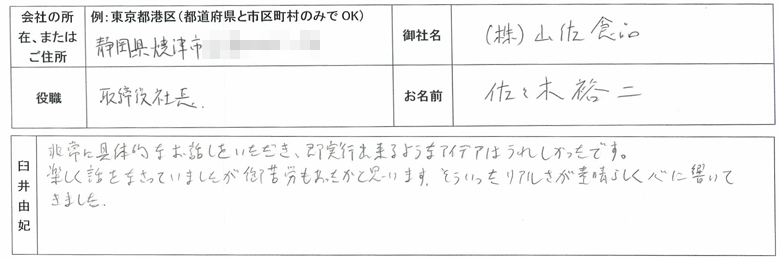 会社の所在、またはご住所
例：東京都港区（都道府県と市区町村のみでOK）
静岡県焼津市
御社名
(株)山佐食品
役職
取締役社長.
お名前
佐々木裕二
臼井由妃
非常に具体的なお話しをいただき、即実行出来るようなアイデアはうれしかったです。
楽しく話をなさっていましたが御苦労もあったかと思います。そういったリアルさが素晴らしく心に響いて
きました.